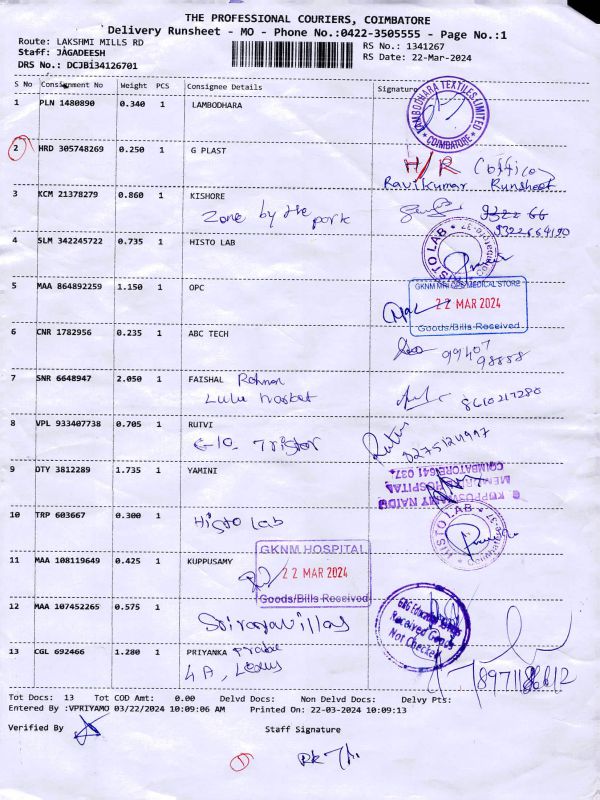 THE PROFESSIONAL COURIERS, COIMBATORE
Delivery Runsheet - MO - Phone No.:0422-3505555 - Page No.:1
Route: LAKSHMI MILLS RD
RS No.: 1341267
Staff: JAGADEESH
RS Date: 22-Mar-2024
DRS No.: DCJBi34126701
S No Consignment No Weight PCS Consignee Details Signature
1 PLN 1480890 0.340 1 LAMBODHARA
KAMBODHARA TEXTILES LIMITED COIMBATORE
2 HRD 305748269 0.250 1 G PLAST
H/R
Ravikumar Runsheet
3 KCM 21378279 0.860 1 KISHORE
Zone by the park
9322 66
9322664190
4 SLM 342245722 0.735 1 HISTO LAB
HISTO LAB
5 MAA 864892259 1.150 1 OPC
GKNM MRI OPS MEDICAL STORE
22 MAR 2024
Goods/Bills Received
6 CNR 1782956 0.235 1 ABC TECH
99407
98888
7 SNR 6648947 2.050 1 FAISHAL Rahman
Lulu market
8610217280
8 VPL 933407738 0.705 1 RUTVI
Rutvi
9 DTY 3812289 1.735 1 YAMINI
G. KUPPUSWAMY NAIDU
MEMORIAL HOSPITAL
COIMBATORE-641 037.
10 TRP 603667 0.300 1
Histo Lab
HISTO LAB Coimbatore-37
11 MAA 108119649 0.425 1 KUPPUSAMY
GKNM HOSPITAL
22 MAR 2024
Goods/Bills Received
12 MAA 107452265 0.575 1
Received Goods
Not Checked
13 CGL 692466 1.280 1 PRIYANKA
4A, Lotus
Tot Docs: 13 Tot COD Amt: 0.00 Delvd Docs: Non Delvd Docs: Delvy Pts:
Entered By :VPRIYAMO 03/22/2024 10:09:06 AM Printed On: 22-03-2024 10:09:13
Verified By
Staff Signature